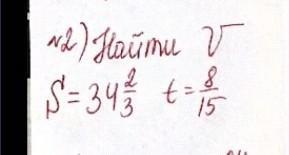 №2) Найти V
S = 34 2/3 t = 8/15